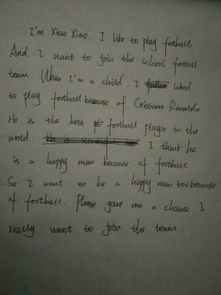 I'm Xiao Xiao. I like to play football.
And I want to join the school football
team. When I'm a child, I liked
to play football because of Cristiano Ronaldo
He is the best football player in the
world. I think he
is a happy man because of football
So I want to be a happy man too because
of football. Please gave me a chance. I
really want to join the team